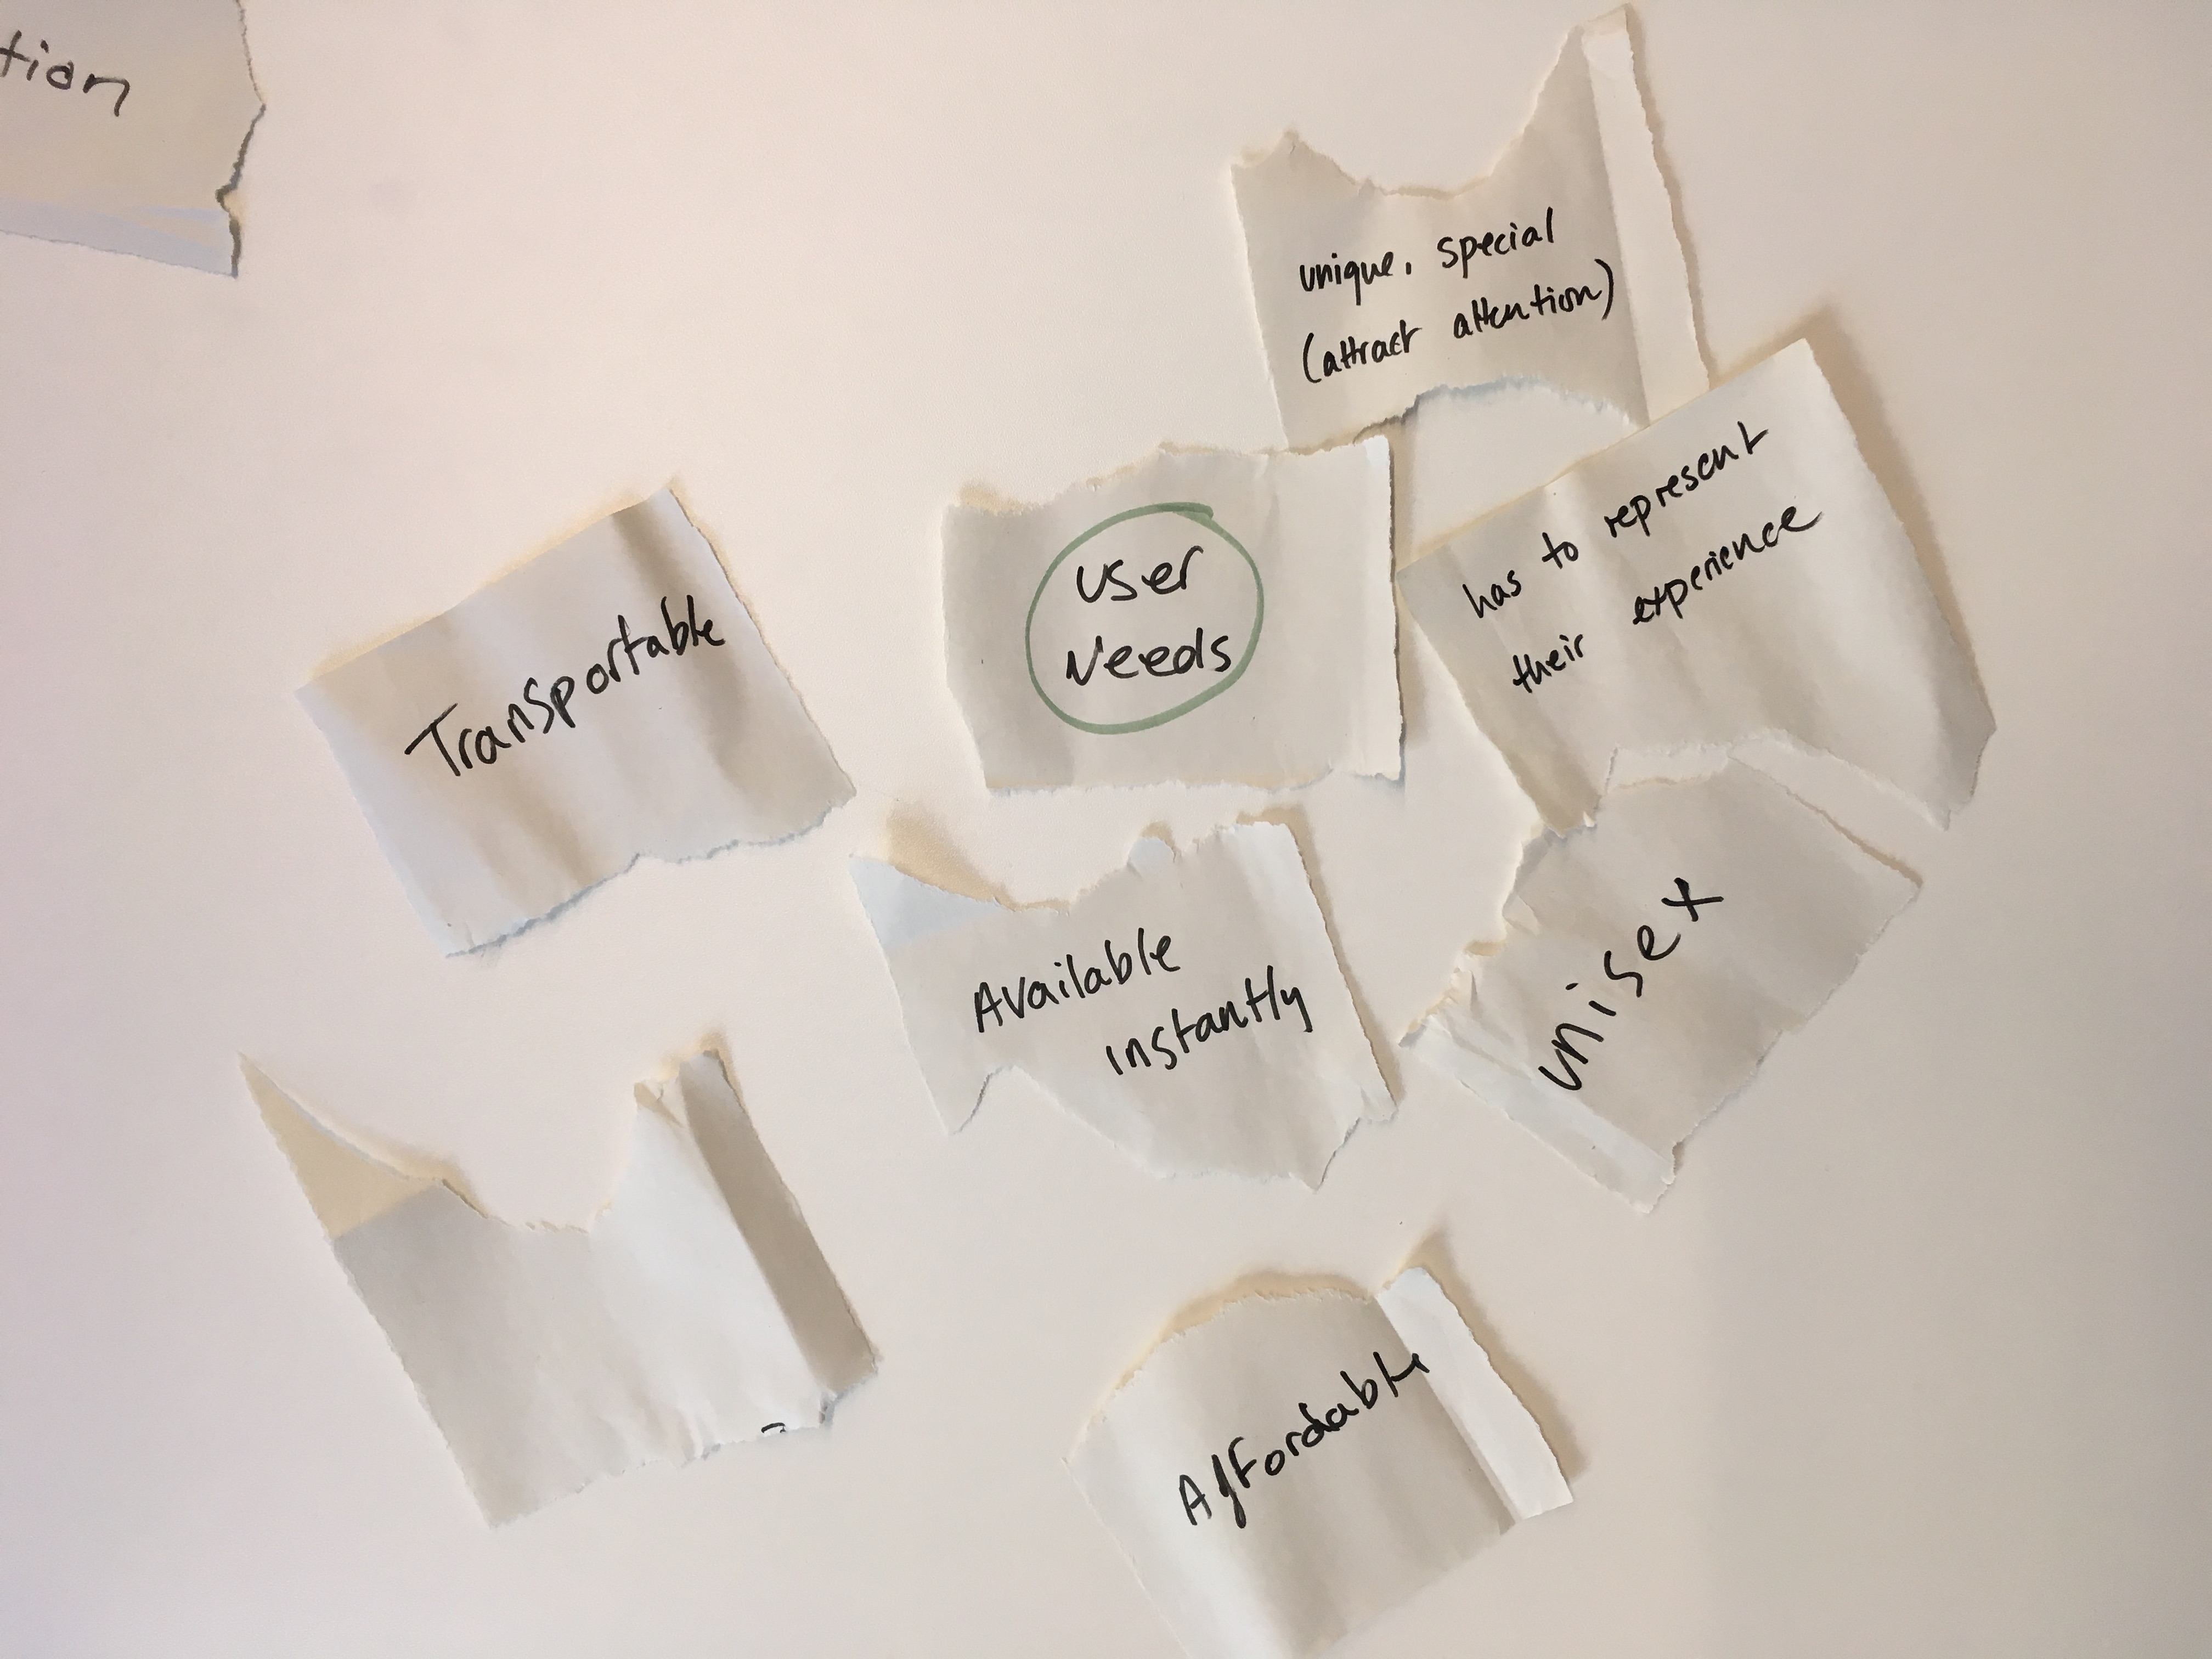 tion
unique, special
(attract attention)
has to represent
their experience
User
Needs
Transportable
Available
instantly
unisex
Affordable